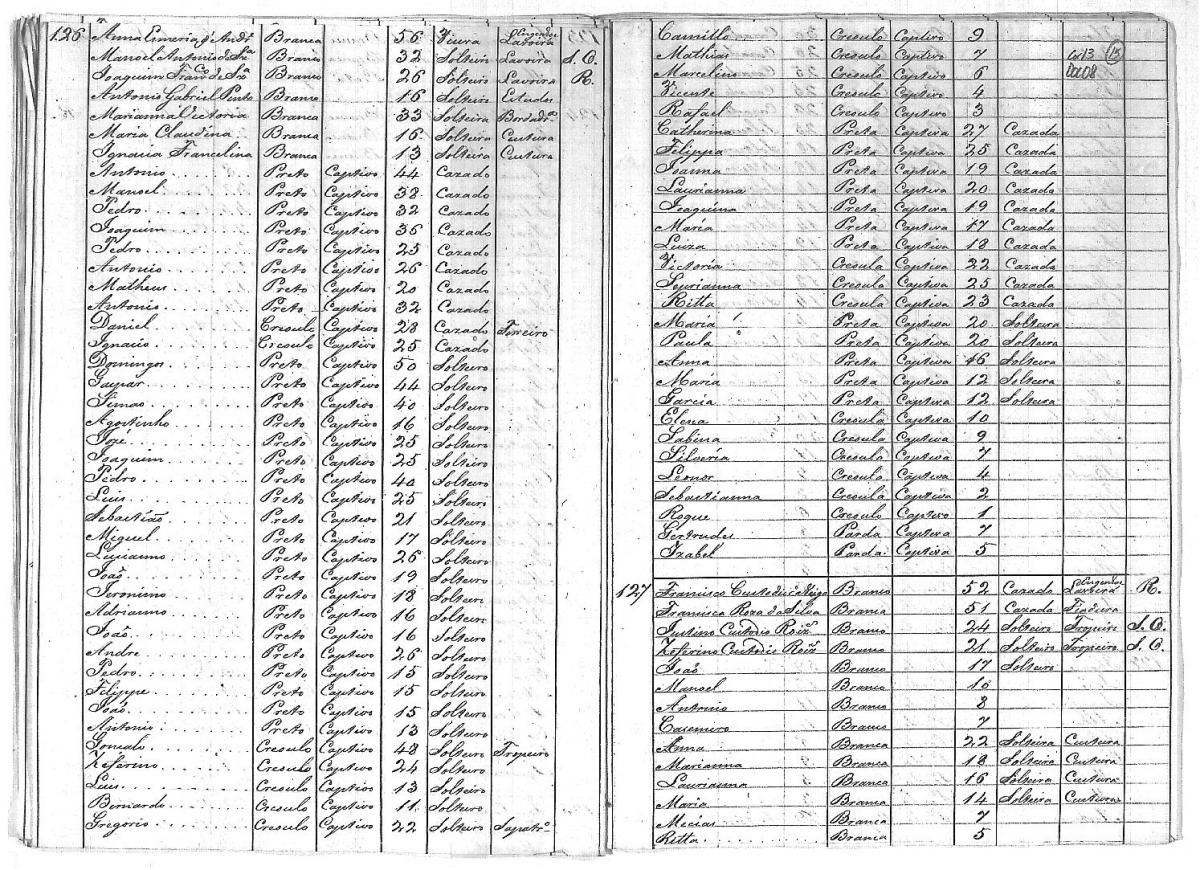 126 Anna Emeria d'Andr.e Branca 56 Viura Engenho Lavoira
Manoel Antonio de Sz.a Branco 32 Solteiro Lavoira S. O.
Joaquim Fran.co de Sz.a Branco 26 Solteiro Lavoira R.
Antonio Gabriel Pinto Branco 16 Solteiro Estudos
Marianna Victoria Branca 33 Solteira Bordadr.a
Maria Claudina Branca 16 Solteira Custura
Ignacia Francelina Branca 13 Solteira Custura
Antonio Preto Captivo 44 Cazado
Manoel Preto Captivo 38 Cazado
Pedro Preto Captivo 32 Cazado
Joaquim Preto Captivo 36 Cazado
Pedro Preto Captivo 25 Cazado
Antonio Preto Captivo 26 Cazado
Matheus Preto Captivo 20 Cazado
Antonio Preto Captivo 32 Cazado
Daniel Cresulo Captivo 28 Cazado Ferreiro
Ignacio Cresulo Captivo 25 Cazado
Domingos Preto Captivo 50 Solteiro
Gaspar Preto Captivo 44 Solteiro
Simao Preto Captivo 40 Solteiro
Agostinho Preto Captivo 16 Solteiro
José Preto Captivo 25 Solteiro
Joaquim Preto Captivo 25 Solteiro
Pedro Preto Captivo 40 Solteiro
Luis Preto Captivo 25 Solteiro
Sebastião Preto Captivo 21 Solteiro
Miguel Preto Captivo 17 Solteiro
Luciano Preto Captivo 26 Solteiro
João Preto Captivo 19 Solteiro
Jeronimo Preto Captivo 18 Solteiro
Adrianno Preto Captivo 16 Solteiro
João Preto Captivo 16 Solteiro
Andre Preto Captivo 26 Solteiro
Pedro Preto Captivo 15 Solteiro
Filippe Preto Captivo 15 Solteiro
João Preto Captivo 15 Solteiro
Antonio Preto Captivo 13 Solteiro
Goncalo Cresulo Captivo 48 Solteiro Tropeiro
Zeferino Cresulo Captivo 24 Solteiro
Luis Cresulo Captivo 13 Solteiro
Bernardo Cresulo Captivo 11 Solteiro
Gregorio Cresulo Captivo 22 Solteiro Sapatr.o
Camillo Cresulo Captivo 9
Mathias Cresulo Captivo 7 Cx13 15
Marcelino Cresulo Captivo 6 Doc08
Vicente Cresulo Captivo 4
Rafael Cresulo Captivo 3
Catherina Preta Captiva 27 Cazada
Filippa Preta Captiva 25 Cazada
Joanna Preta Captiva 19 Cazada
Laurianna Preta Captiva 20 Cazada
Joaquina Preta Captiva 19 Cazada
Maria Preta Captiva 17 Cazada
Luiza Preta Captiva 18 Cazada
Victoria Cresula Captiva 22 Cazada
Cresula Captiva 25 Cazada
Ritta Cresula Captiva 23 Cazada
Maria Preta Captiva 20 Solteira
Paula Preta Captiva 20 Solteira
Anna Preta Captiva 16 Solteira
Maria Preta Captiva 12 Solteira
Garcia Preta Captiva 12 Solteira
Elena Cresula Captiva 10
Sabina Cresula Captiva 9
Silveria Cresula Captiva 7
Leonor Cresula Captiva 4
Sebastianna Cresula Captiva 2
Roque Cresulo Captivo 1
Gertrudes Parda Captiva 7
Izabel Parda Captiva 5
127 Francisco Custodio Branco 52 Cazado Engenho Lavoira R.
Francisca Roza da Silva Branca 51 Cazada Fiadeira
Justino Custodio Roiz Branco 24 Solteiro Tropeiro S. O.
Zeferino Custodio Roiz Branco 21 Solteiro Tropeiro S. O.
João Branco 17 Solteiro
Manoel Branco 10
Antonio Branco 8
Casemiro Branco 7
Anna Branca 22 Solteira Custura
Marianna Branca 18 Solteira Custura
Laurianna Branca 16 Solteira Custura
Maria Branca 14 Solteira Custura
Mecias Branca 7
Ritta Branca 5